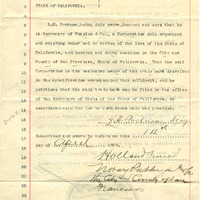 STATE OF CALIFORNIA.
J.H. Parkman, being duly sworn, deposes and says that he
is Secretary of Wangles & Co., a Corporation duly organized
and existing under and by virtue of the laws of the State of
California, and located and doing business in the City and
County of San Francisco, State of California. That the said
Corporation is the exclusive owner of the trade mark described
in the specification accompanying this affidavit, and he
petitions that the said trade mark may be filed in the office
of the Secretary of State of the State of California, in
accordance with law in such case made and provided.
Subscribed and sworn to before me this
day of April
Holland Smith
Notary Public in and for
The City and County of San
Francisco